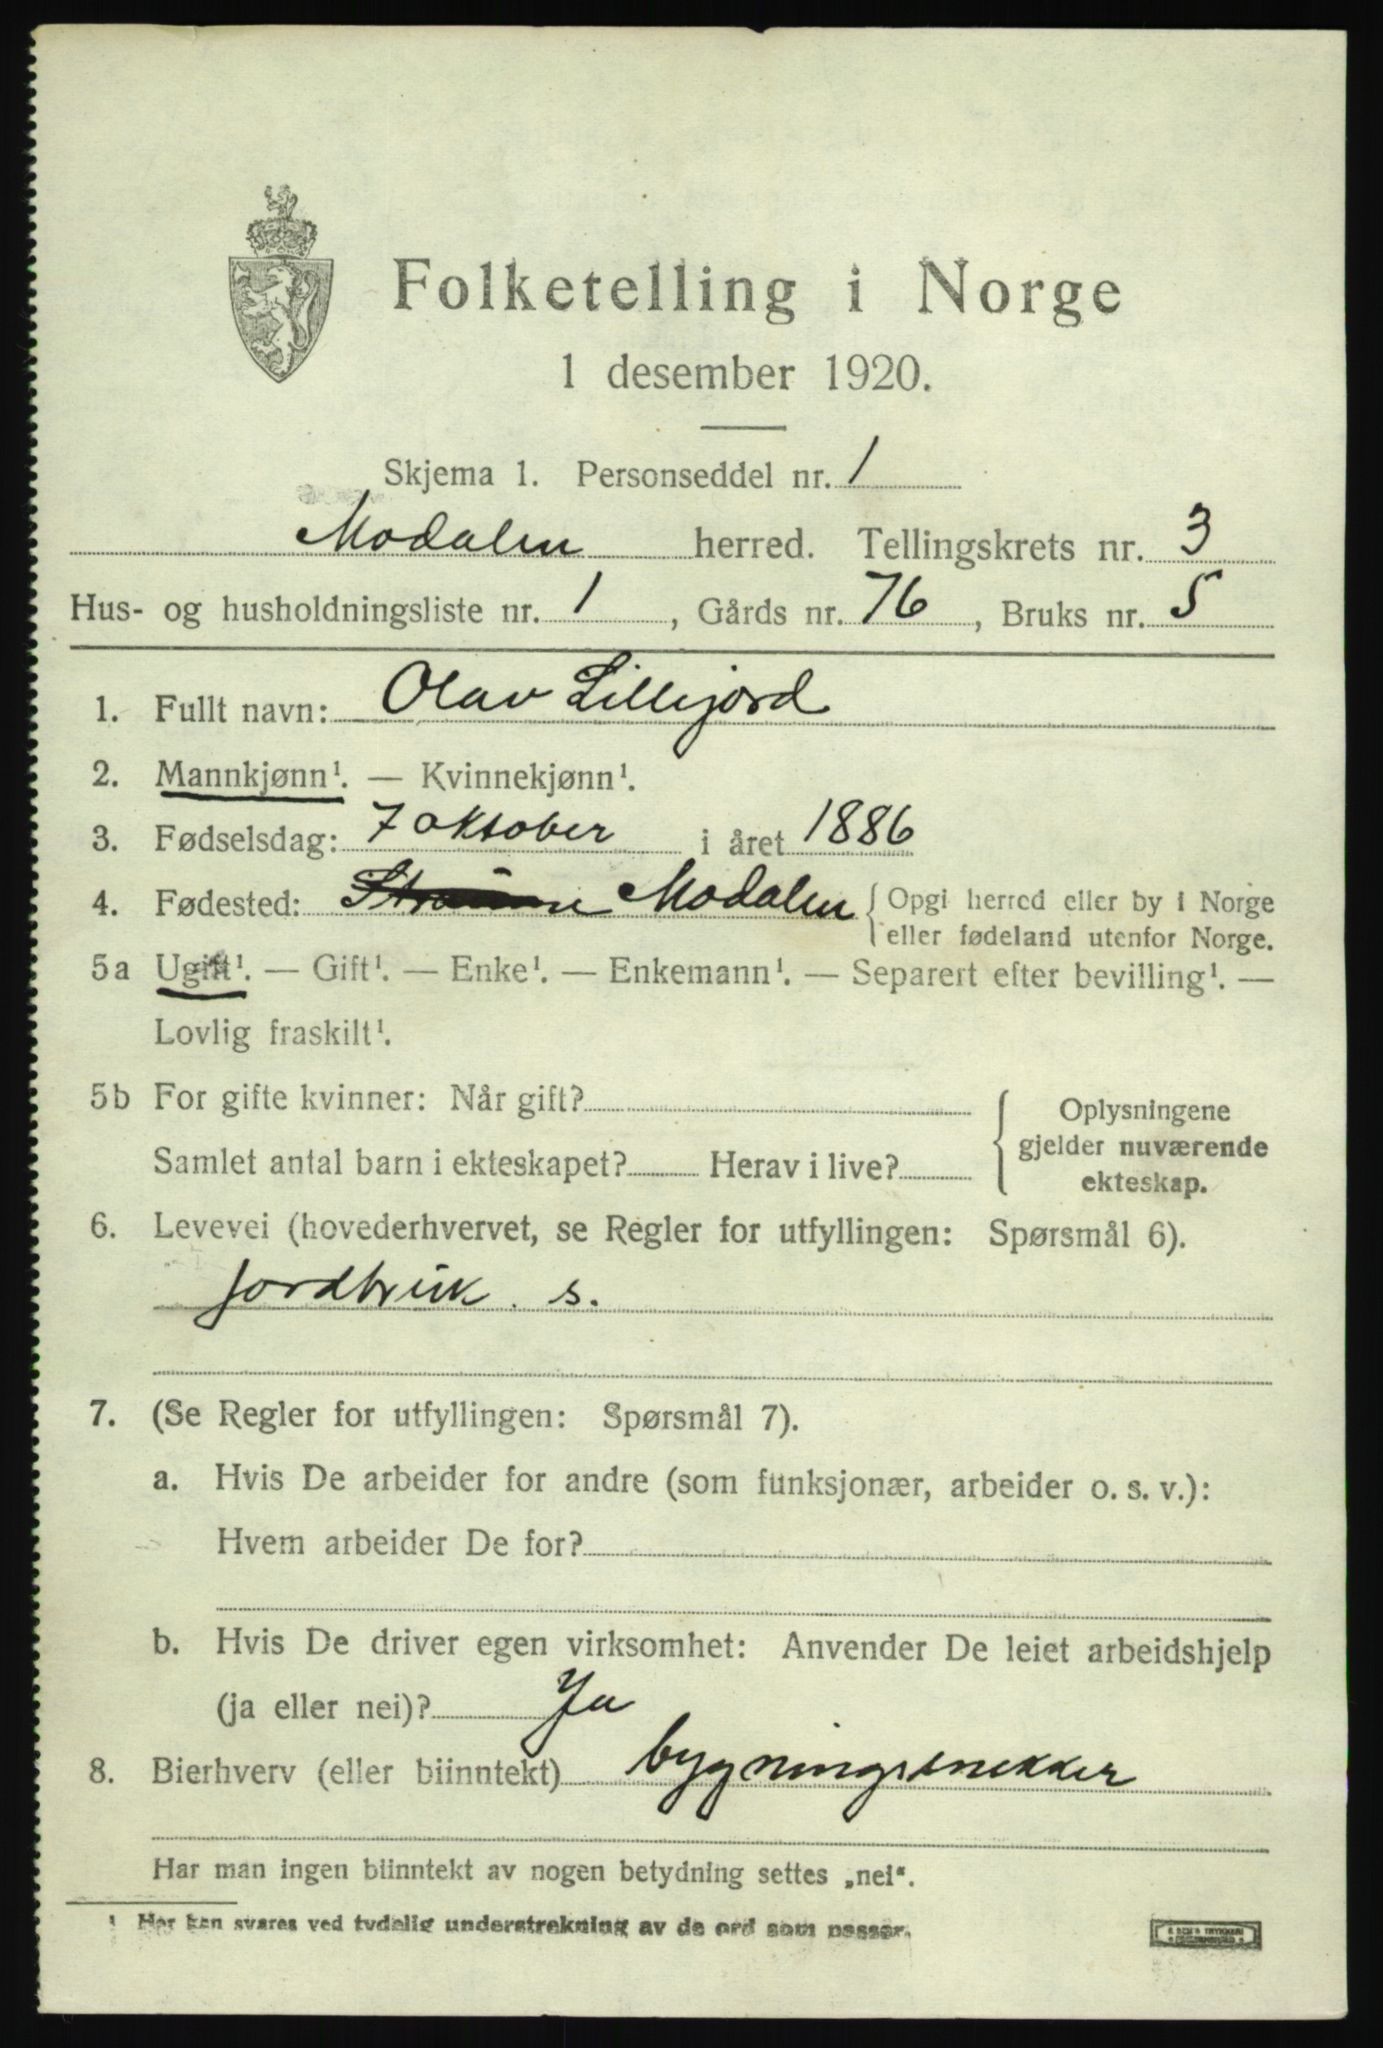 Folketelling i Norge
1 desember 1920.
Skjema 1. Personseddel nr. 1
Modalen herred. Tellingskrets nr. 3
Hus- og husholdningsliste nr. 1, Gårds nr. 76, Bruks nr. 5
1. Fullt navn: Olav Lillejord
2. Mannkjønn¹. — Kvinnekjønn¹.
3. Fødselsdag: 7 oktober i året 1886
4. Fødested: Modalen { Opgi herred eller by i Norge
eller fødeland utenfor Norge.
5a Ugift¹. — Gift¹. — Enke¹. — Enkemann¹. — Separert efter bevilling¹. —
Lovlig fraskilt¹.
5b For gifte kvinner: Når gift? { Oplysningene
gjelder nuværende
Samlet antal barn i ekteskapet? Herav i live?
ekteskap.
6. Levevei (hovederhvervet, se Regler for utfyllingen: Spørsmål 6).
jordbruk. s.
7. (Se Regler for utfyllingen: Spørsmål 7).
a. Hvis De arbeider for andre (som funksjonær, arbeider o. s. v.):
Hvem arbeider De for?
b. Hvis De driver egen virksomhet: Anvender De leiet arbeidshjelp
(ja eller nei)? Ja
8. Bierhverv (eller biinntekt) bygningssnekker
Har man ingen biinntekt av nogen betydning settes „nei“.
¹ Her kan svares ved tydelig understrekning av de ord som passer.